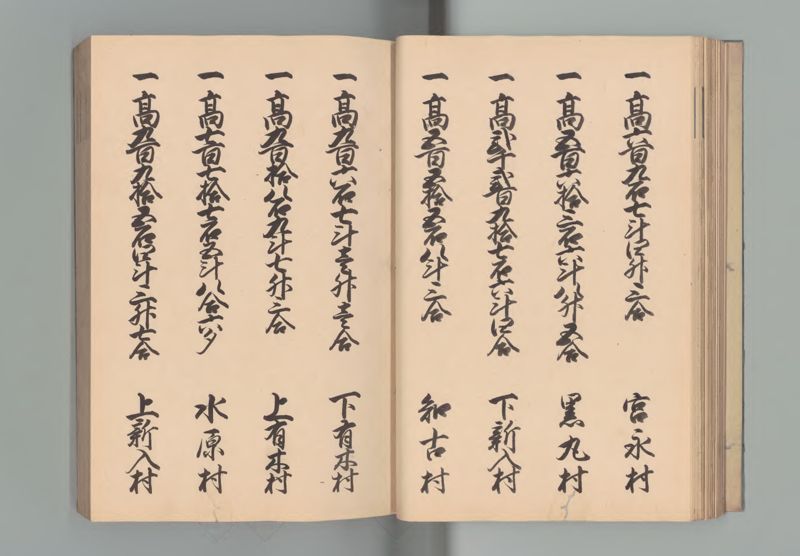 一 高六百九石七斗四升三合 宮永村
一 高五百六拾三石六斗八升五合 黒丸村
一 高弐千弐百九拾七石六斗四合 下新入村
一 高五百五拾五石八斗三合 知古村
一 高九百六石七斗壱升壱合 下有木村
一 高九百拾八石九斗七升三合 上有木村
一 高七百七拾七石五斗八合六夕 水原村
一 高九百九拾五石四斗三升七合 上新入村